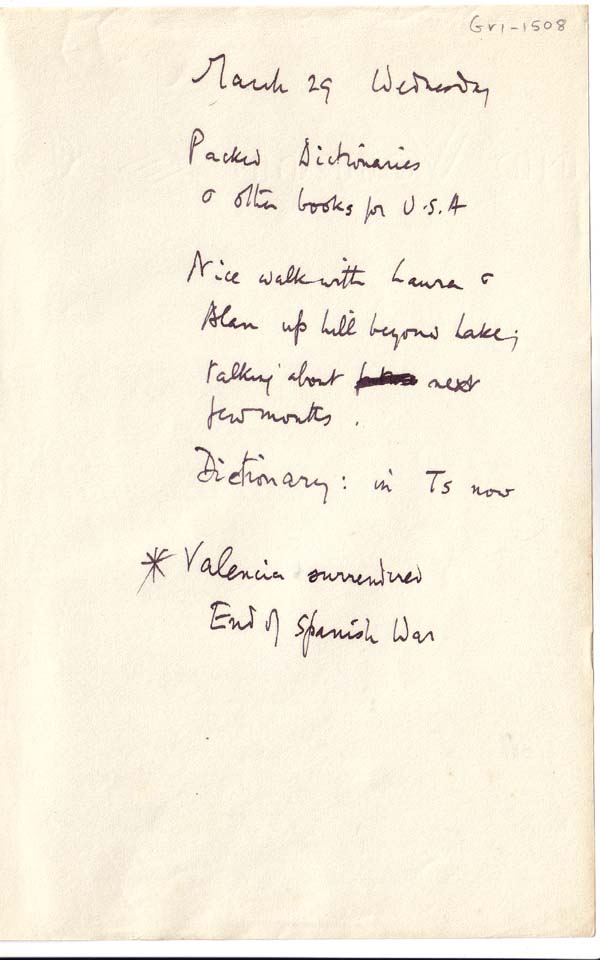 Gr1-1508
March 29 Wednesday
Packed Dictionaries
& other books for U.S.A
Nice walk with Laura &
Alan up hill beyond Lake;
talking about next
few months.
Dictionary: in Ts now
* Valencia surrendered
End of Spanish War